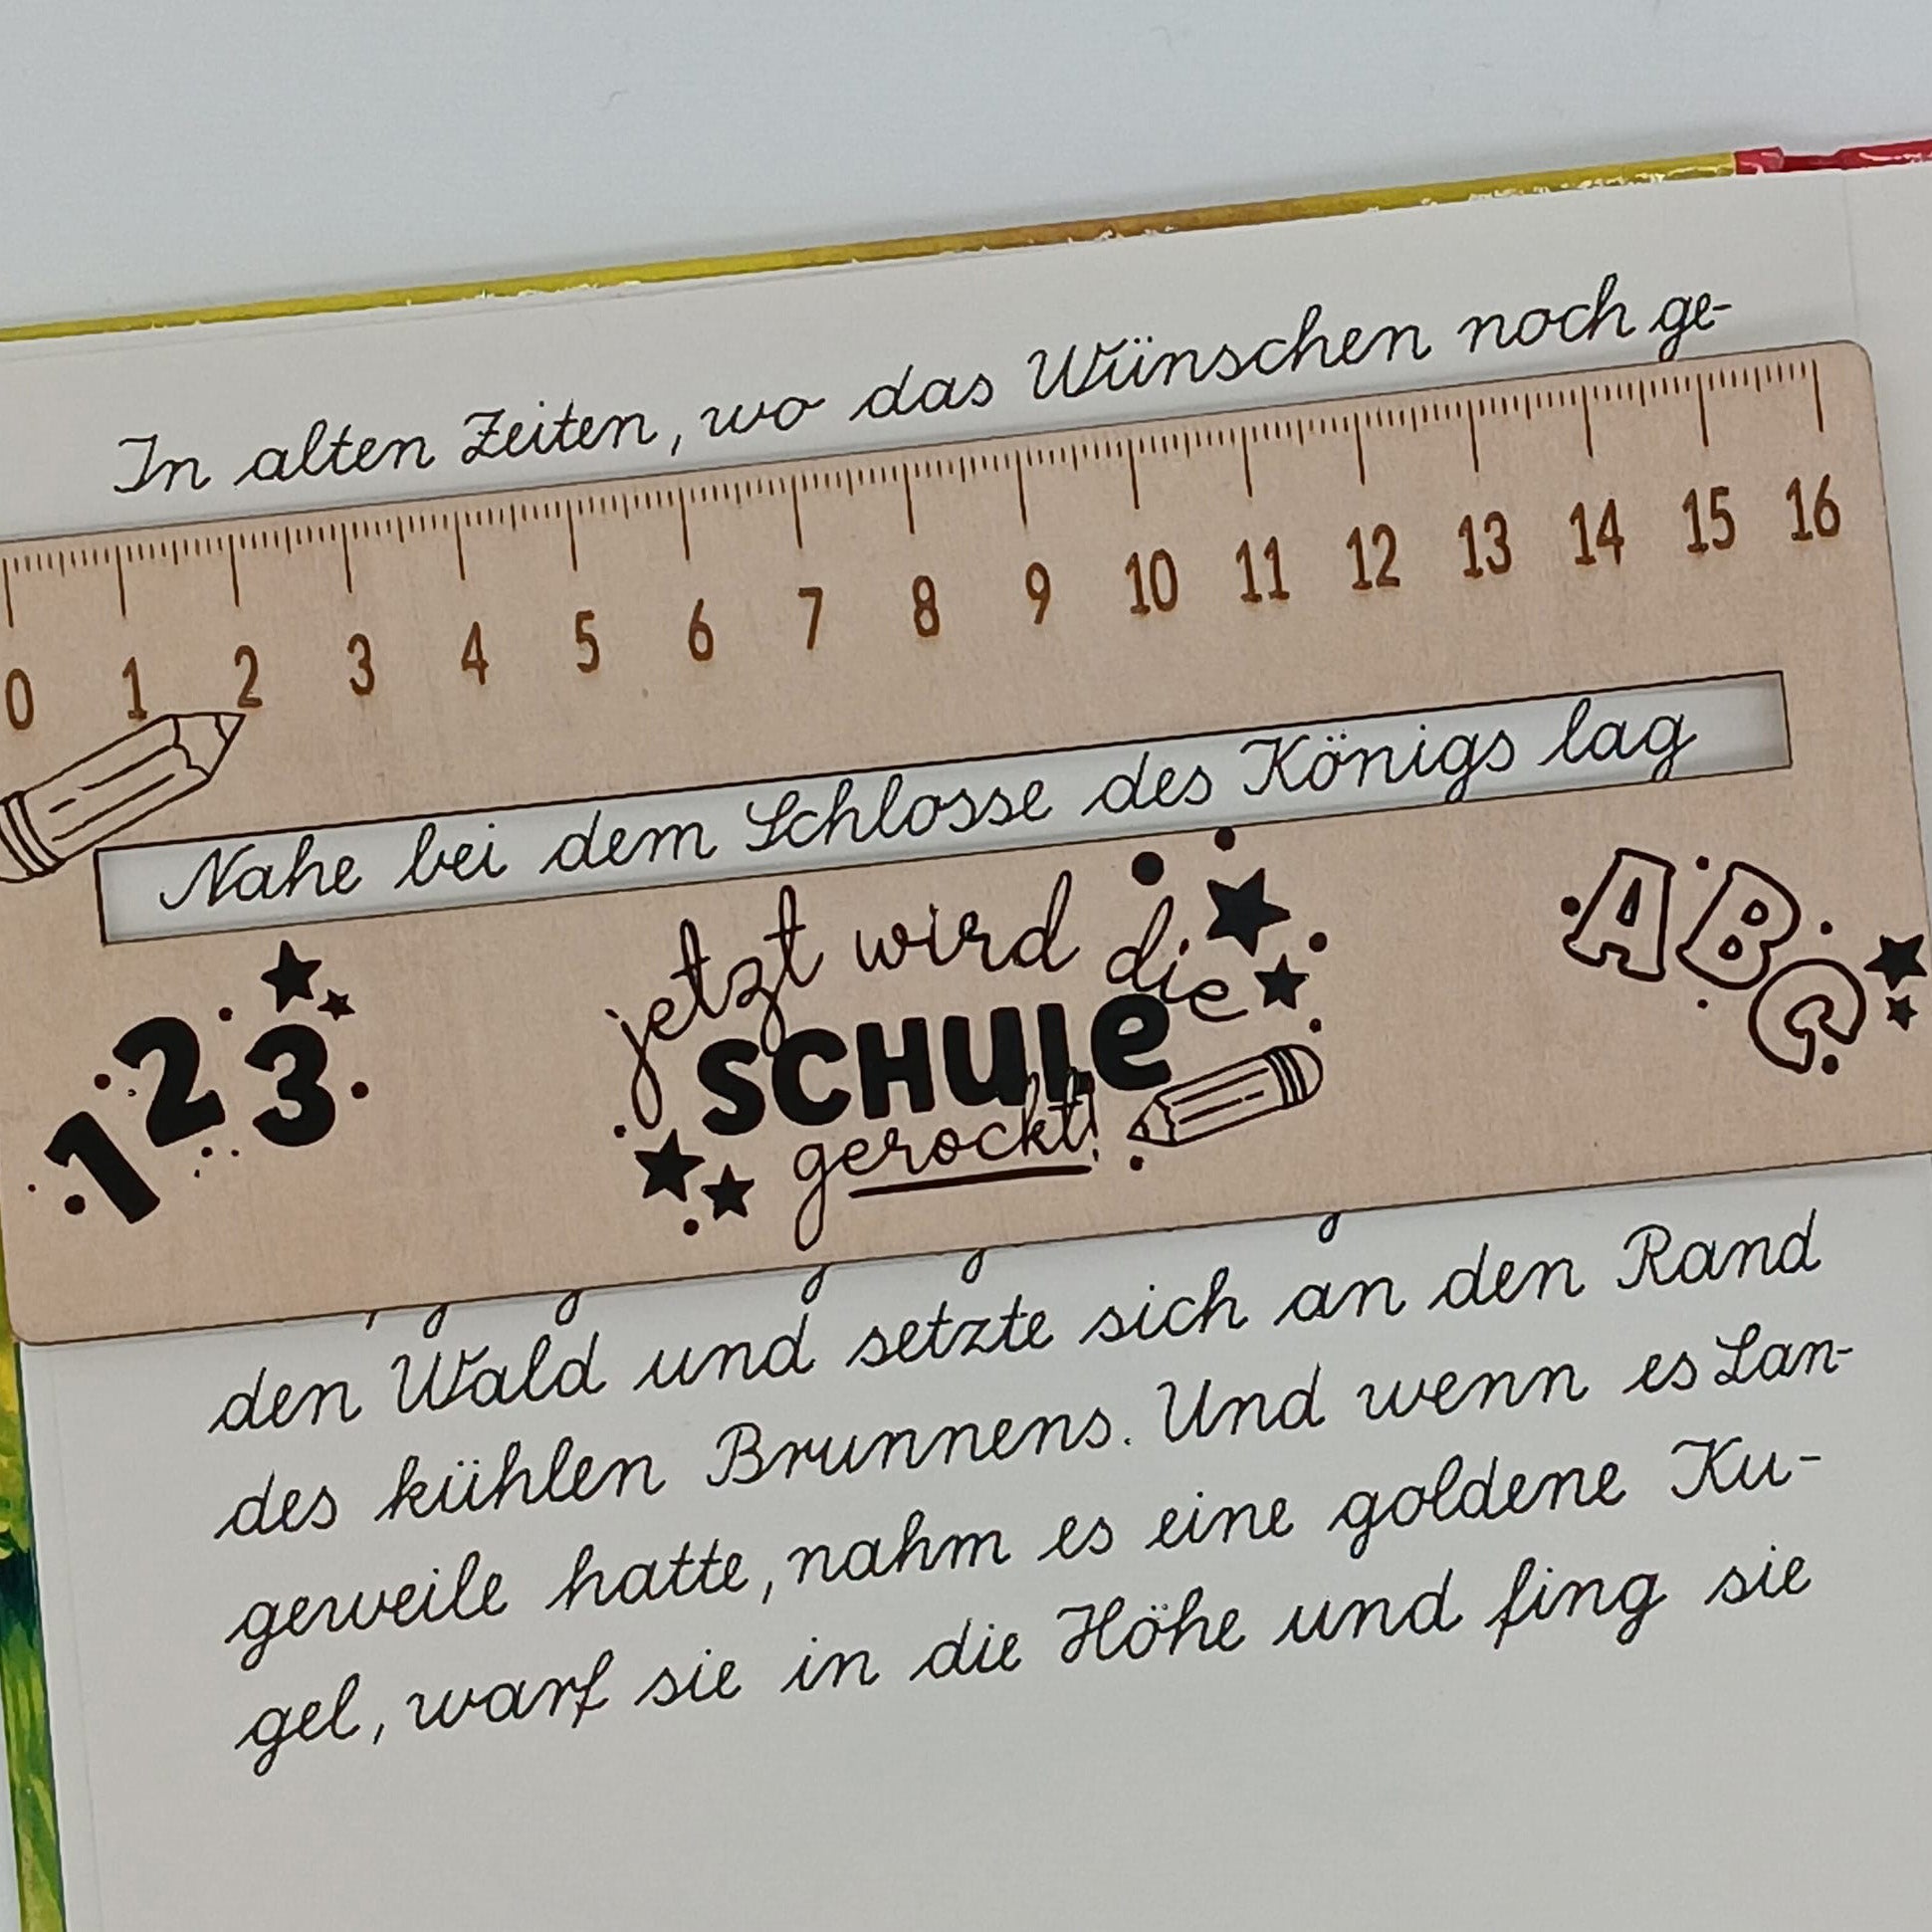 In alten Zeiten, wo das Wünschen noch ge-
0 1 2 3 4 5 6 7 8 9 10 11 12 13 14 15 16
Nahe bei dem Schlosse des Königs lag
1 2 3
jetzt wird die
SCHULE
gerockt!
A B C
den Wald und setzte sich an den Rand
des kühlen Brunnens. Und wenn es Lan-
geweile hatte, nahm es eine goldene Ku-
gel, warf sie in die Höhe und fing sie